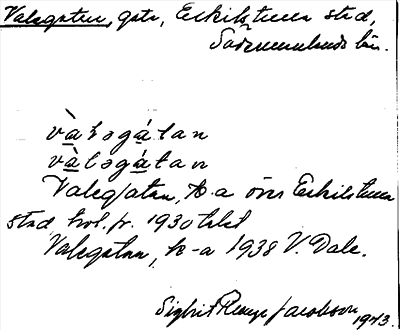 Valegatan, gata, Eskilstuna stad,
Södermanlands län.
và̱ɦəgá̱tan
và̱ləgá̱tan
Valegatan, k-a över Eskilstuna
stad, trol. fr. 1930 talet
Valegatan, k-a 1938 V. Dale.
Sigbrit Jacobson 1943.